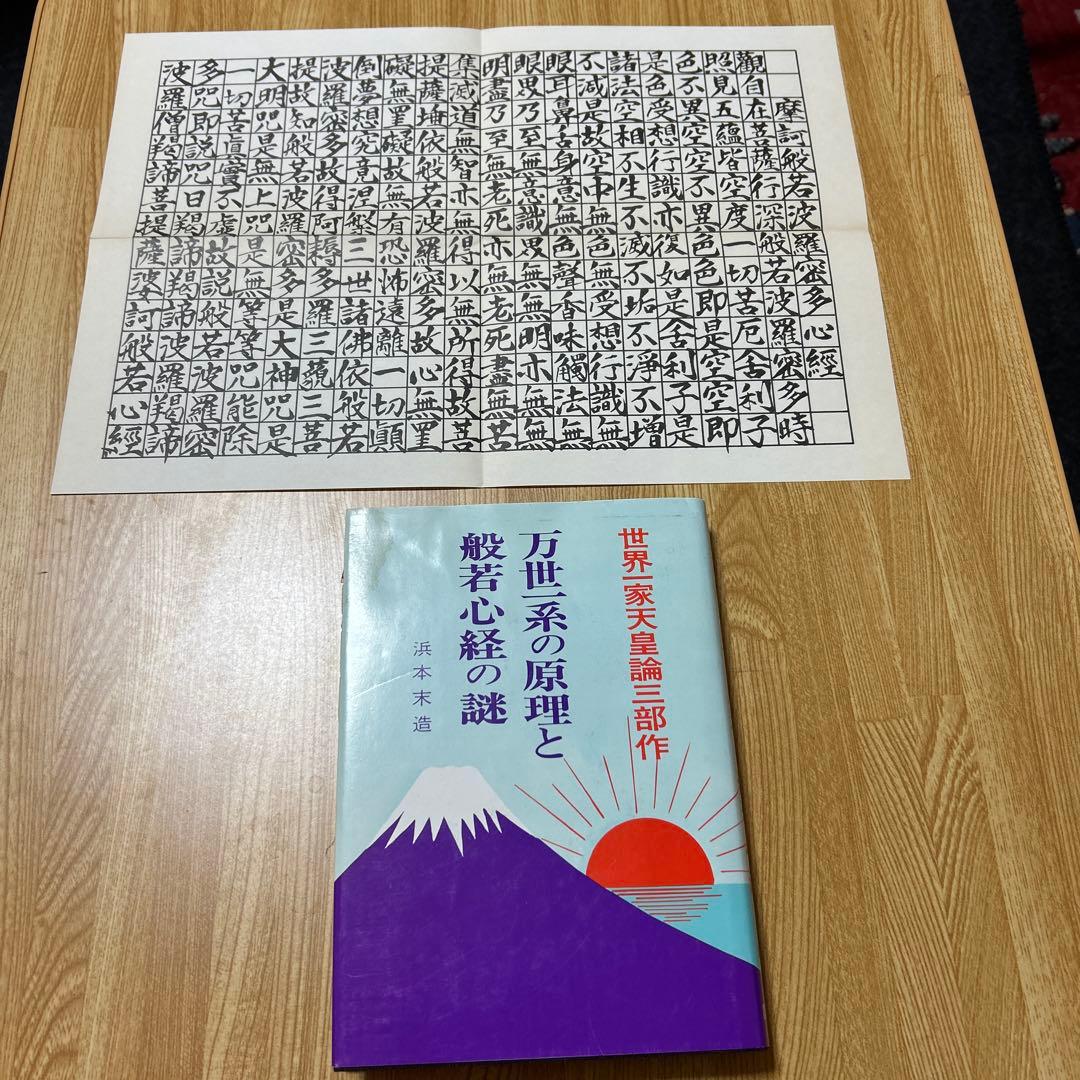 摩訶般若波羅密多心經
觀自在菩薩行深般若波羅密多時
照見五蘊皆空度一切苦厄舍利子
色不異空空不異色色即是空空即
是色受想行識亦復如是舍利子是
諸法空相不生不滅不垢不淨不增
不減是故空中無色無受想行識無
眼耳鼻舌身意無色聲香味觸法無
眼界乃至無意識界無無明亦無無
明盡乃至無老死亦無老死盡無苦
集滅道無智亦無得以無所得故菩
提薩埵依般若波羅密多故心無罣
礙無罣礙故無有恐怖遠離一切顚
倒夢想究竟涅槃三世諸佛依般若
波羅密多故得阿耨多羅三藐三菩
提故知般若波羅密多是大神咒是
大明咒是無上咒是無等等咒能除
一切苦眞實不虛故説般若波羅密
多咒即説咒曰羯諦羯諦波羅羯諦
波羅僧羯諦菩提薩婆訶般若心經
世界一家天皇論三部作
万世一系の原理と
般若心経の謎
浜本末造